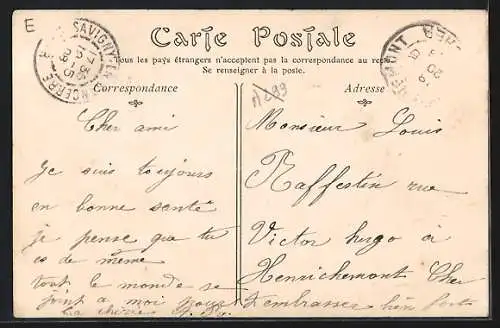 E
SAVIGNY-EN
SANCERRE
17 35
15 -5
09
Carte Postale
HENRICHEMONT CHER
Tous les pays étrangers n'acceptent pas la correspondance au recto
Se renseigner à la poste.
Correspondance
Adresse
Cher ami
je suis toujours
en bonne senté
je pense que tu
es de même
tout le monde se
joint a moi pour
Monsieur Louis
Raffestin rue
Victor hugo a
Henrichemont Cher
t'embrasser bien fort